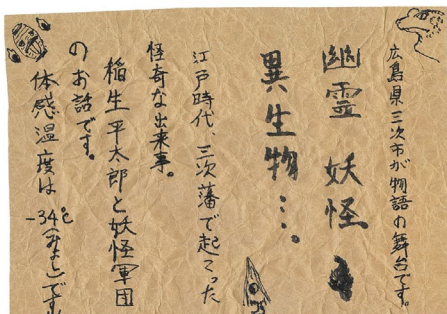 広島県三次市が物語の舞台です。
幽霊 妖怪
異生物…。
江戸時代、三次藩で起こった
怪奇な出来事。
稲生平太郎と妖怪軍団
のお話です。
体感温度は
-34℃(みよし)です